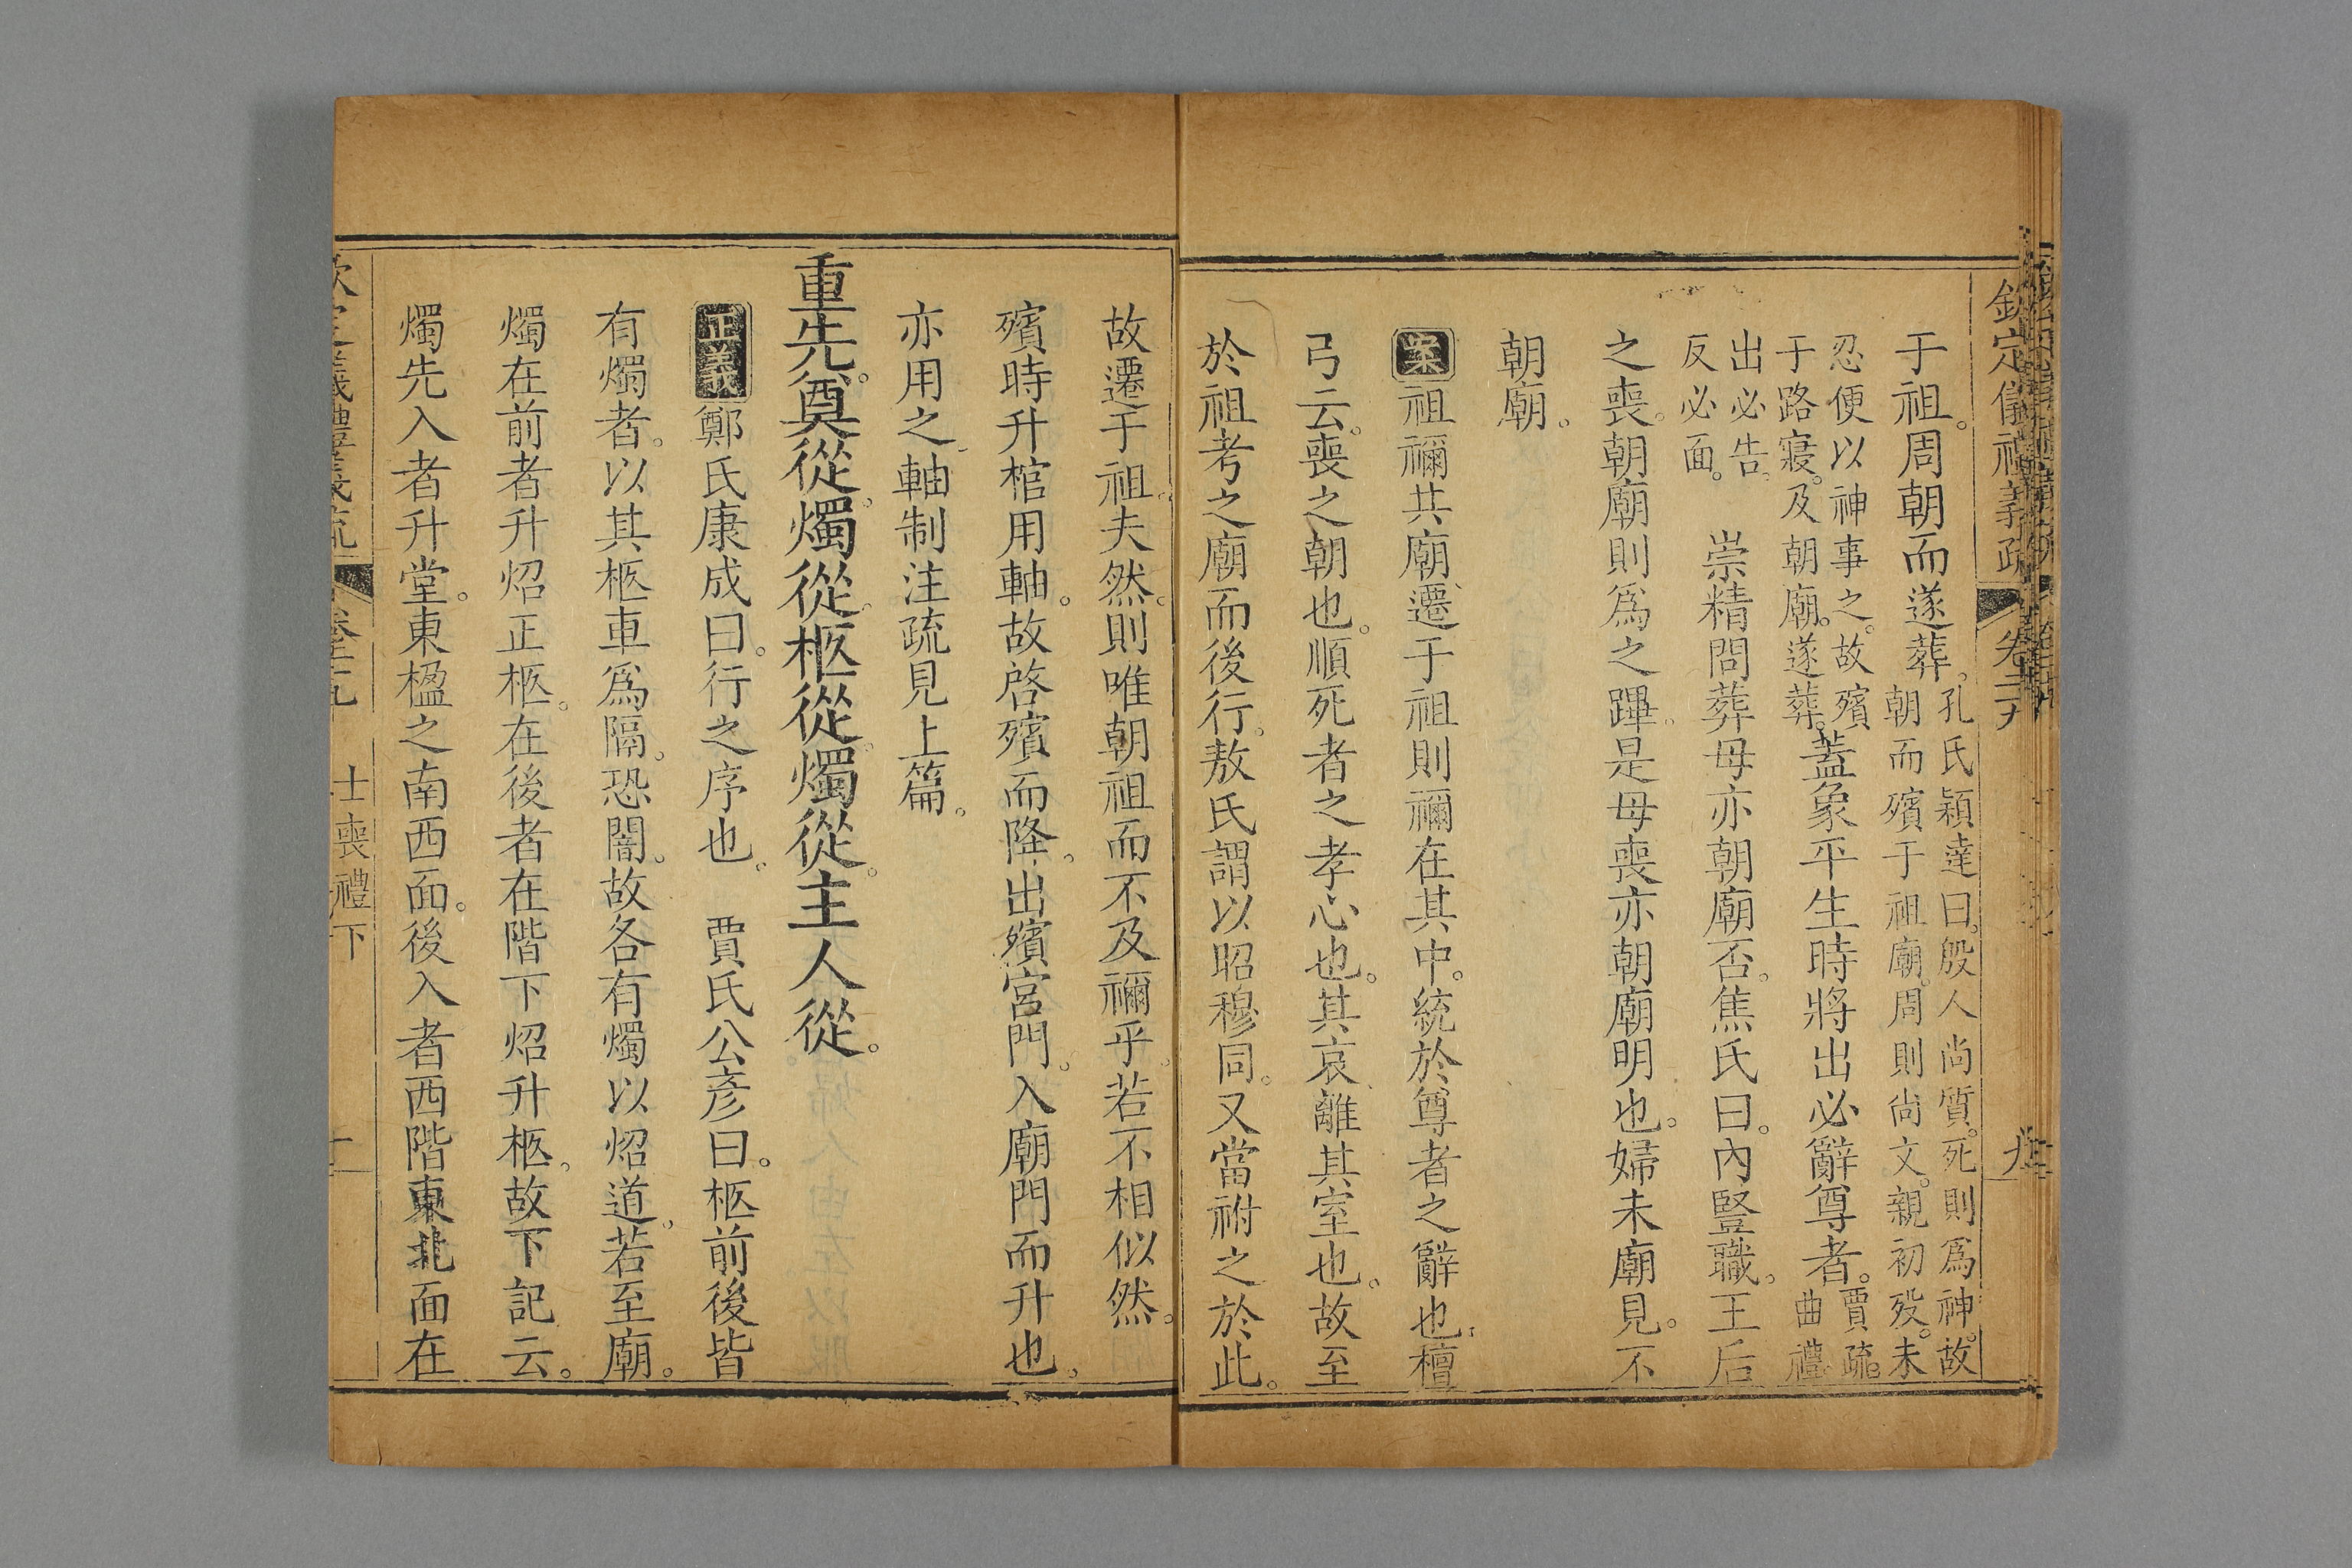 欽定儀禮義疏 卷二十九 九
于祖。周朝而遂葬。孔氏穎達曰。殷人尚質。死則爲神。故
朝而殯于祖廟。周則尚文。親初歿。未
忍便以神事之。故殯
于路寢。及朝廟。遂葬。蓋象平生時將出必辭尊者。賈疏。
曲禮。
出必告。
反必面。 崇精問葬母亦朝廟否。焦氏曰。內豎職。王后
之喪。朝廟則爲之蹕。是母喪亦朝廟明也。婦未廟見。不
朝廟。
案祖禰共廟。遷于祖則禰在其中。統於尊者之辭也。檀
弓云。喪之朝也。順死者之孝心也。其哀離其室也。故至
於祖考之廟而後行。敖氏謂以昭穆同。又當祔之於此。
故遷于祖。夫然。則唯朝祖而不及禰乎。若不相似然。
殯時升棺用軸。故啓殯而降。出殯宮門。入廟門而升也。
亦用之。軸制注疏見上篇。
重先。奠從。燭從。柩從。燭從。主人從。
正義鄭氏康成曰。行之序也。 賈氏公彥曰。柩前後皆
有燭者。以其柩車爲隔。恐闇。故各有燭以炤道。若至廟。
燭在前者升炤正柩。在後者在階下炤升柩。故下記云。
燭先入者升堂。東楹之南西面。後入者西階東北面在
士喪禮下